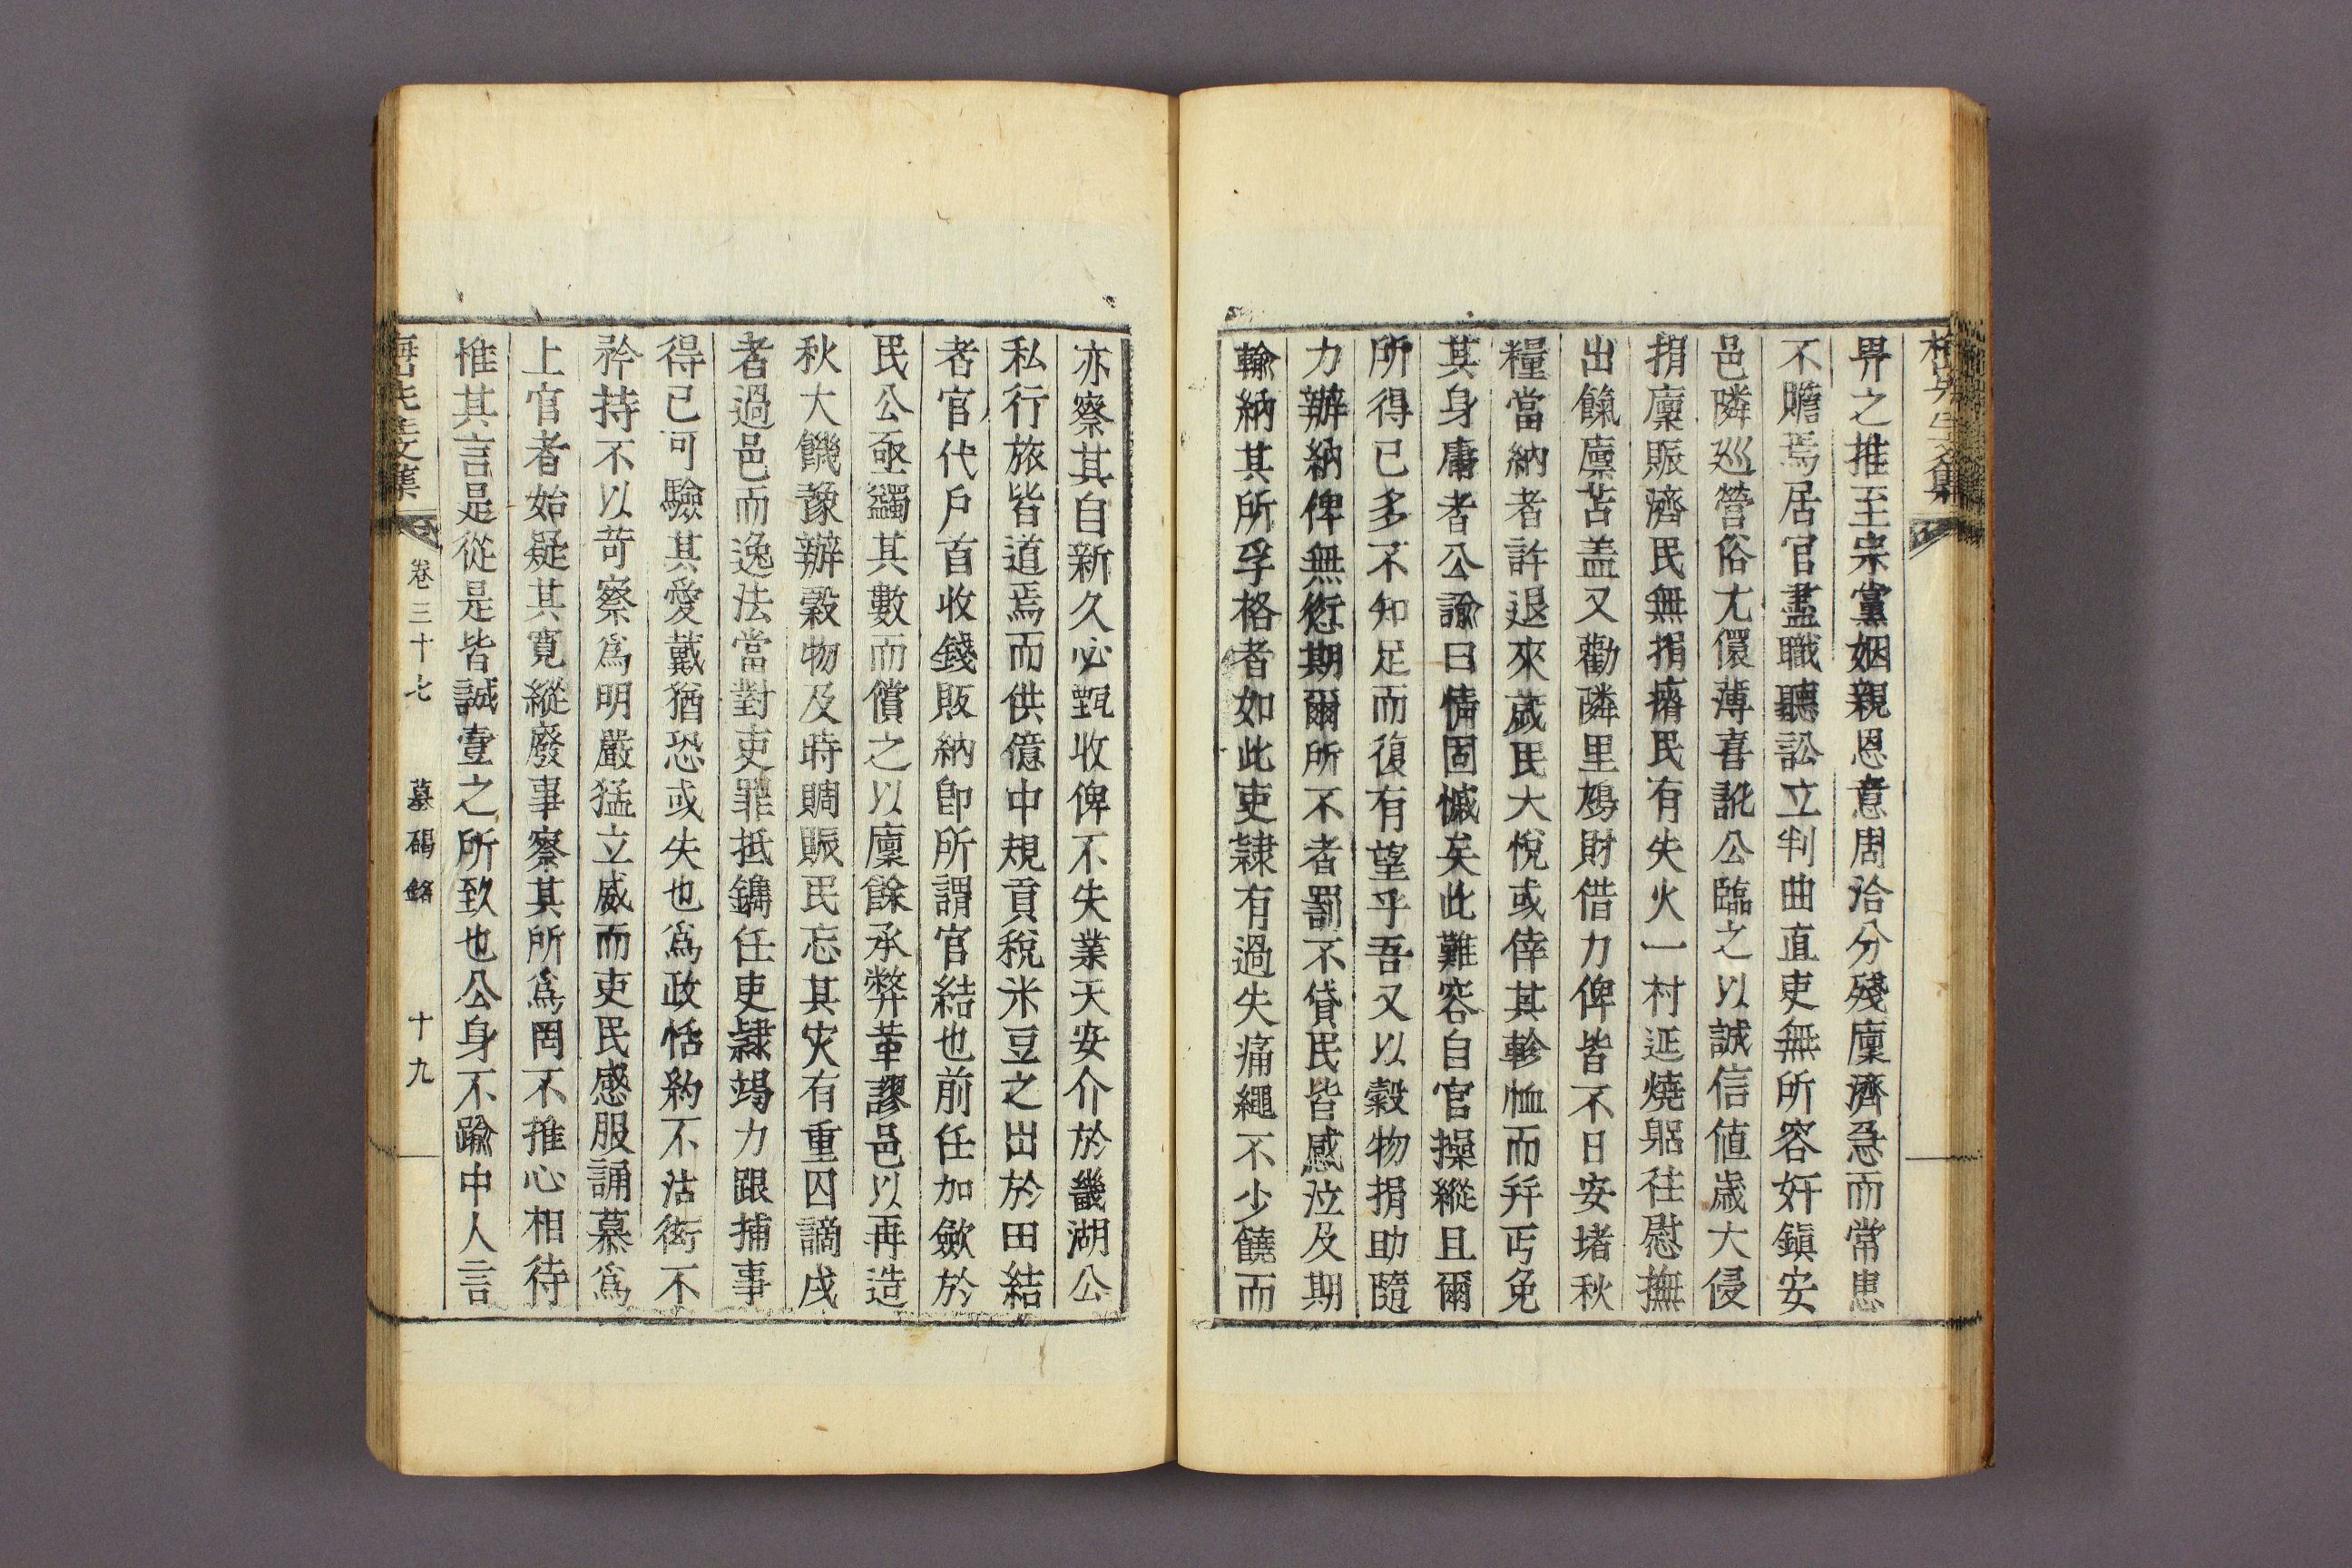 畀之推至宗黨姻親恩意周洽分殘廩濟急而常患
不贍焉居官盡職聽訟立判曲直吏無所容奸鎭安
邑隣巡營俗尤儇薄喜訛公臨之以誠信値歲大侵
捐廩賑濟民無捐瘠民有失火一村延燒躬往慰撫
出餼廩苫盖又勸隣里朥財借力俾皆不日安堵秋
糧當納者許退來歲民大悅或倖其軫恤而幷丏免
其身庸者公諭曰情固慽矣此難容自官操縱且爾
所得已多不知足而復有望乎吾又以穀物捐助隨
力辦納俾無愆期爾所不者罰不貸民皆感泣及期
輸納其所孚格者如此吏隷有過失痛繩不少饒而
亦察其自新久必甄收俾不失業天安介於畿湖公
私行旅皆道焉而供億中規貢稅米豆之出於田結
者官代戶首收錢販納卽所謂官結也前任加歛於
民公亟蠲其數而償之以廩餘承弊革謬邑以再造
秋大饑豫辦穀物及時賙賑民忘其灾有重囚謫戍
者過邑而逸法當對吏罪抵鐫任吏隷竭力跟捕事
得已可驗其愛戴猶恐或失也爲政恬約不沽衒不
矜持不以苛察爲明嚴猛立威而吏民感服誦慕爲
上官者始疑其寬縱廢事察其所爲罔不推心相待
惟其言是從是皆誠壹之所致也公身不踰中人言
卷三十七 墓碣銘 十九